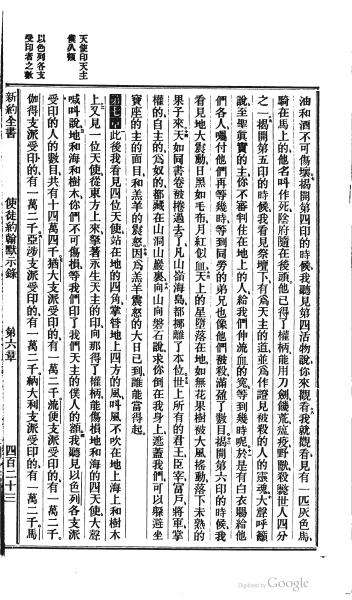 天使印天主
僕人額
以色列各支
受印者之數
新約全書
使徒約翰默示錄
第六章
四百二十三
油和酒不可傷壞揭開第四印的時候我聽見第四活物說你來觀看我就觀看見有一匹灰色馬
騎在馬上的他名叫作死陰府隨在後頭他已得了權柄能用刀劍饑荒瘟疫野獸殺斃世人四分
之一揭開第五印的時候我看見祭壇下有爲天主的道並爲作證見被殺的人的靈魂大聲呼籲
說至聖眞實的主你不審判住在地上的人給我們伸流血的寃等到幾時呢於是有白衣賜給他
們各人囑付他們再等幾時等到同勞的弟兄也像他們被殺滿盈了數目揭開第六印的時候我
看見地大震動日黑如毛布月紅似血天上的星墮落在地如無花果樹被大風搖動落下未熟的
果子來天如同書卷被捲過去了凡山嶺海島都挪離了本位世上所有的君王臣宰富戶將軍掌
權的自主的爲奴的都藏在山洞山巖裏向山向磐石說求你倒在我身上遮蓋我們可以躱避坐
寶座的主的面目和羔羊的震怒因爲羔羊震怒的大日已到誰能當得起
第七章此後我看見四位天使站在地的四角掌管地上四方的風叫風不吹在地上海上和樹木
上又見一位天使從東方上來拏著永生天主的印向那得了權柄能傷損地和海的四天使大聲
喊叫說地和海和樹木你們不可傷損等我們印了我們天主的僕人的額我聽見以色列各支派
受印的人的數目共有十四萬四千猶大支派受印的有一萬二千流便支派受印的有一萬二千
伽得支派受印的有一萬二千亞涉支派受印的有一萬二千納大利支派受印的有一萬二千馬
Digitized by Google